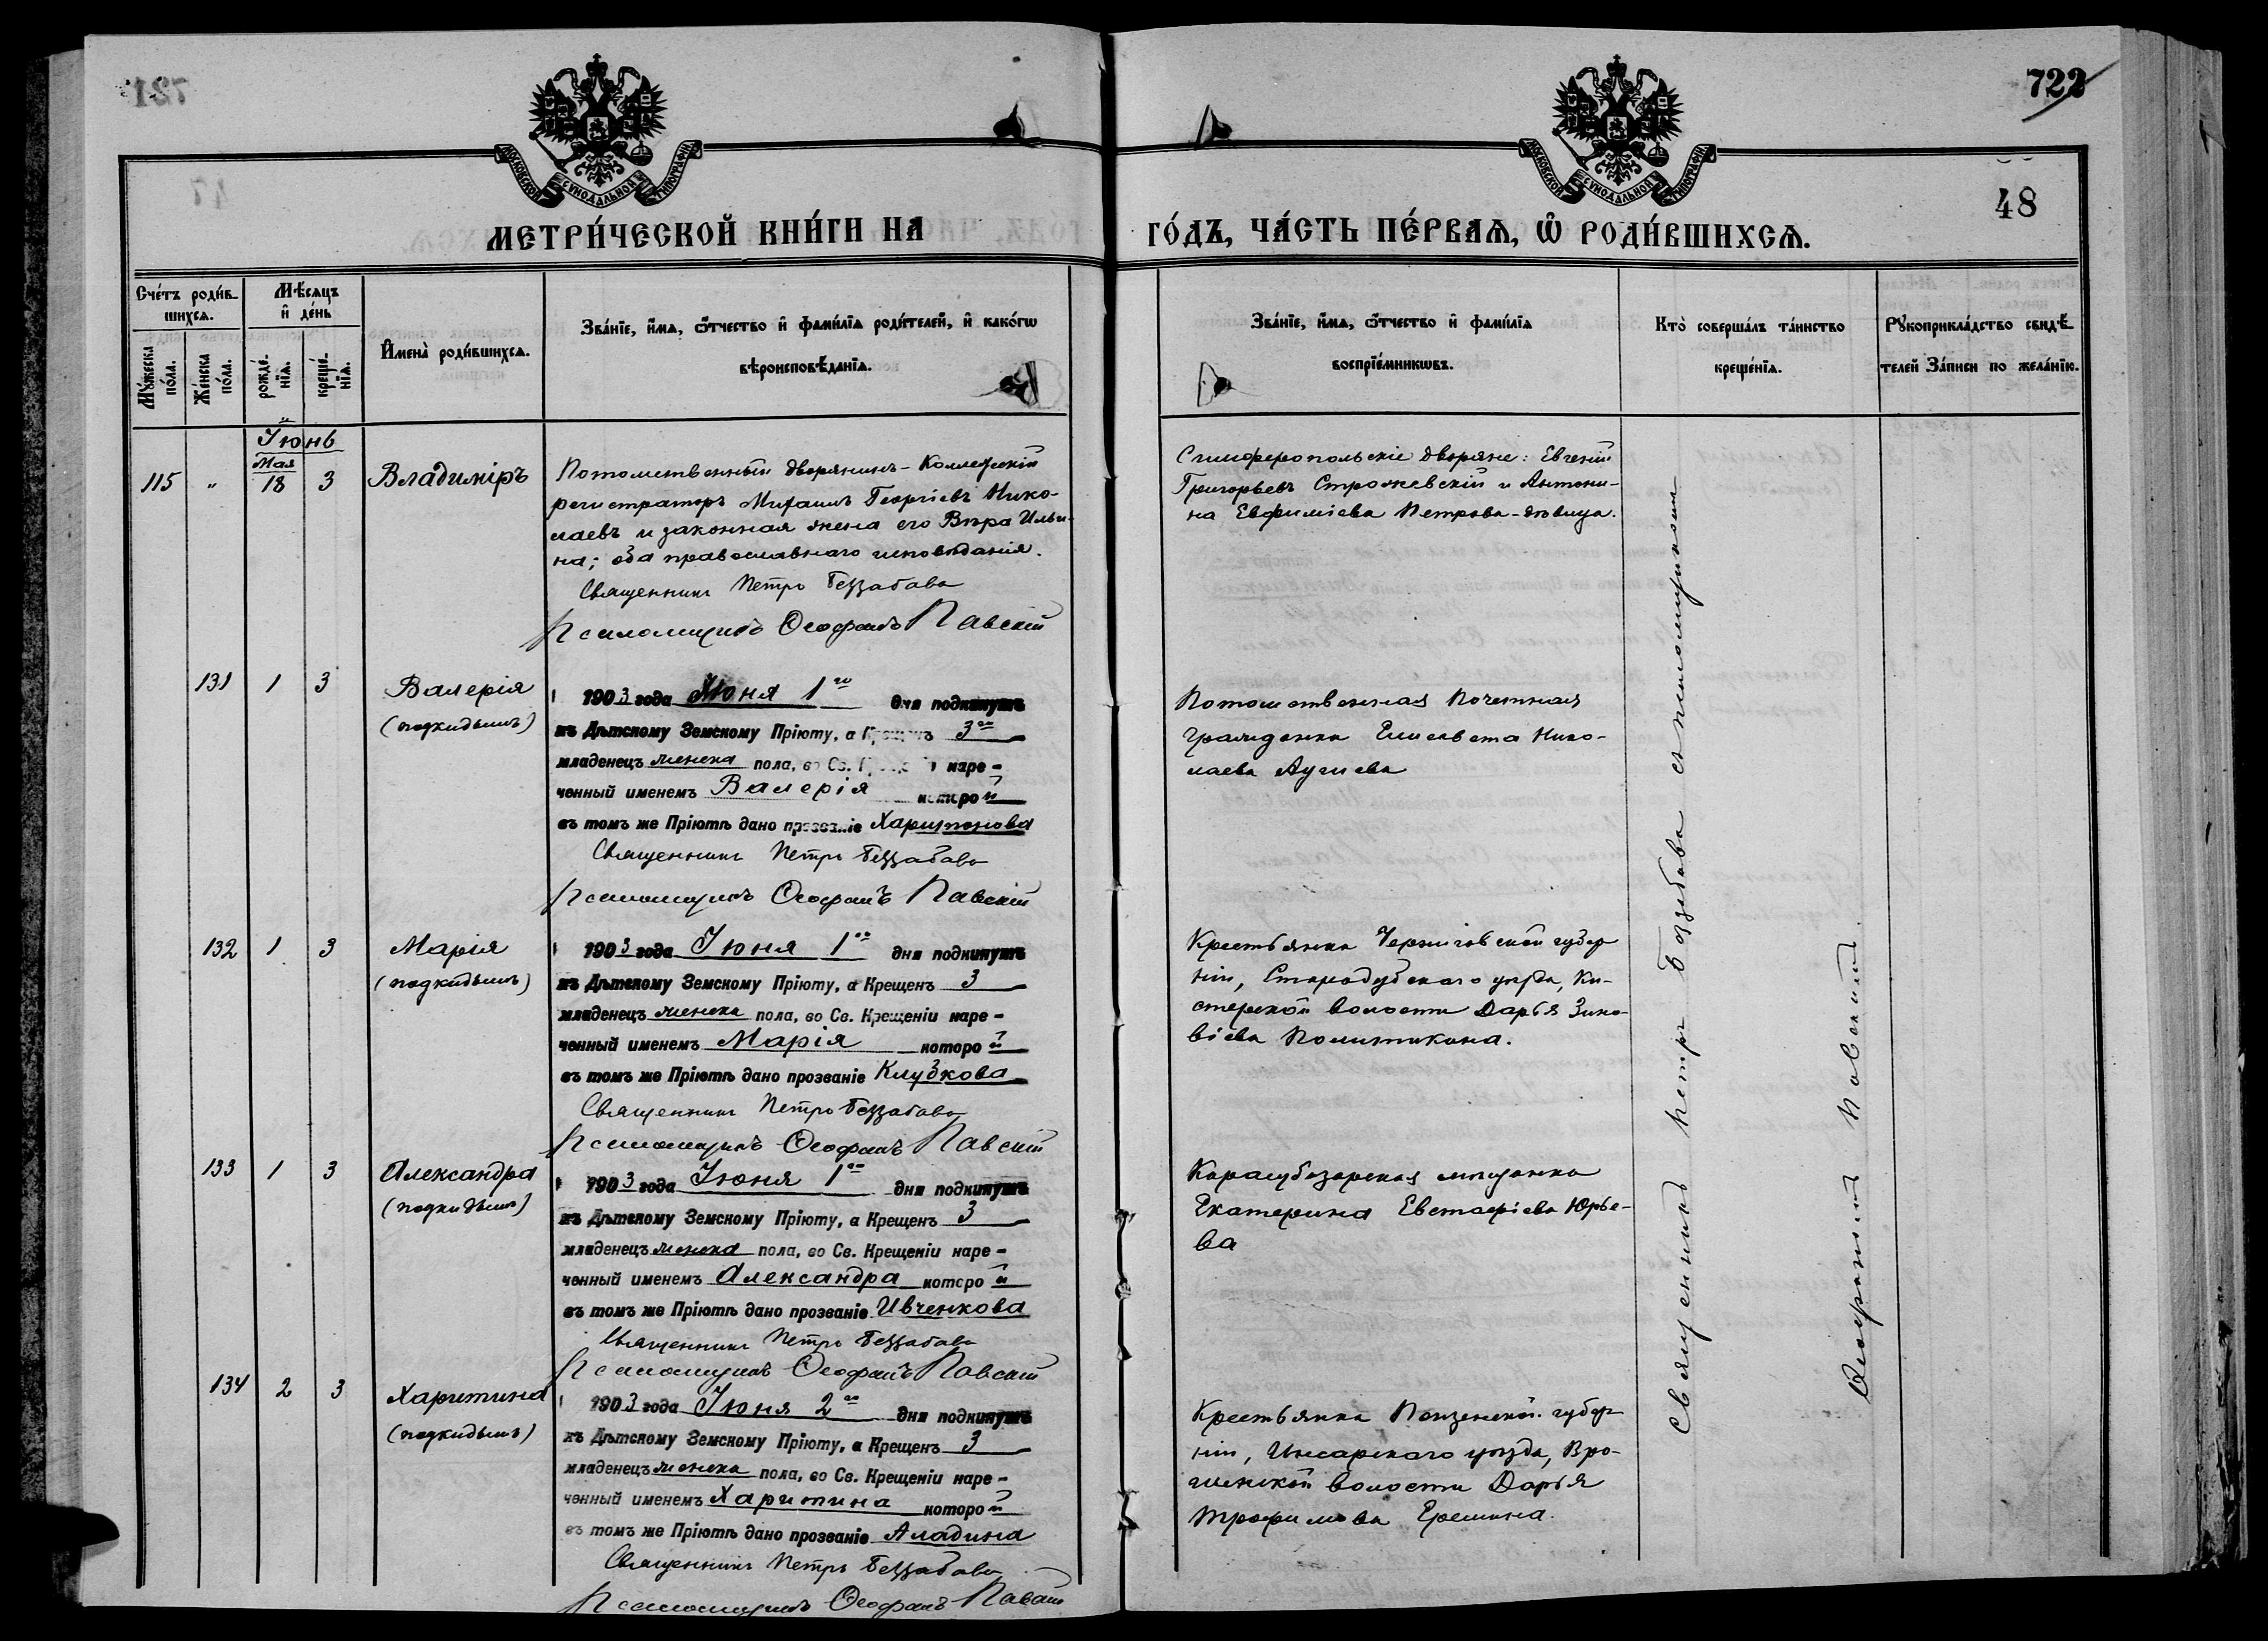 722
48
МОСКОВСКОЙ СУНОДАЛЬНОЙ ТИПОГРАФІИ
МОСКОВСКОЙ СУНОДАЛЬНОЙ ТИПОГРАФІИ
МЕТРИ́ЧЕСКОЙ КНИ́ГИ НА
ГО́ДЪ, ЧА́СТЬ ПЕ́РВАѦ, Ѡ҆ РОДИ́ВШИХСѦ.
Сче́тъ роди́в-
шихсѧ.
Мꙋ́жеска по́ла.
Же́нска по́ла.
Мѣ́сѧцъ
и҆ де́нь
рожде́-
нїѧ.
креще́-
нїѧ.
И҆мена̀ роди́вшихсѧ.
Зва́нїе, и҆́мѧ, ѻ҆́тчество и҆ фами́лїѧ роди́телей, и҆ како́гѡ
вѣроисповѣ́данїѧ.
Зва́нїе, и҆́мѧ, ѻ҆́тчество и҆ фами́лїѧ
воспрїе́мникѡвъ.
Кто̀ соверша́лъ та́инство
креще́нїѧ.
Рꙋкоприкла́дство свидѣ́-
телей За́писи по жела́нїю.
Іюнь
Мая
115 " 18 3 Владиміръ
Потомственный дворянинъ - Коллежскій
регистраторъ Михаилъ Георгіевъ Нико-
лаевъ и законная жена его Вѣра Ильи-
на; оба православнаго исповѣданія.
Священникъ Петръ
Псаломщикъ Ѳеофанъ Павскій
Симферопольскіе дворяне: Евгеній
Григорьевъ Стражевскій и Антони-
на Евфиміева Петрова - дѣвица.
131 1 3 Валерія
(подкидышъ)
1903 года Іюня 1го дня подкинутъ
къ Дѣтскому Земскому Пріюту, а Крещенъ 3го
младенецъ женска пола, во Св. Крещеніи наре-
ченный именемъ Валерія которой
въ томъ же Пріютѣ дано прозваніе Харитонова
Священникъ Петръ
Псаломщикъ Ѳеофанъ Павскій
Потомственная Почетная
гражданка Елисавета Нико-
лаева
132 1 3 Марія
(подкидышъ)
1903 года Іюня 1го дня подкинутъ
къ Дѣтскому Земскому Пріюту, а Крещенъ 3
младенецъ женска пола, во Св. Крещеніи наре-
ченный именемъ Марія которой
въ томъ же Пріютѣ дано прозваніе Клубкова
Священникъ Петръ
Псаломщикъ Ѳеофанъ Павскій
Крестьянка Черниговской губер-
ніи, Стародубскаго уѣзда, Ки-
стерской волости Дарья Зино-
віева Политикина.
133 1 3 Александра
(подкидышъ)
1903 года Іюня 1го дня подкинутъ
къ Дѣтскому Земскому Пріюту, а Крещенъ 3
младенецъ женска пола, во Св. Крещеніи наре-
ченный именемъ Александра которой
въ томъ же Пріютѣ дано прозваніе Ивченкова
Священникъ Петръ
Псаломщикъ Ѳеофанъ Павскій
Карасубазарская мѣщанка
Екатерина Евстафіева Юрье-
ва
134 2 3 Харитина
(подкидышъ)
1903 года Іюня 2го дня подкинутъ
къ Дѣтскому Земскому Пріюту, а Крещенъ 3
младенецъ женска пола, во Св. Крещеніи наре-
ченный именемъ Харитина которой
въ томъ же Пріютѣ дано прозваніе Аладина
Священникъ Петръ
Псаломщикъ Ѳеофанъ Павскій
Крестьянка Пензенской губер-
ніи, Инсарскаго уѣзда,
волости Дарья
Трофимова Ерешина.
Священникъ Петръ съ псаломщикомъ
Ѳеофаномъ Павскимъ.